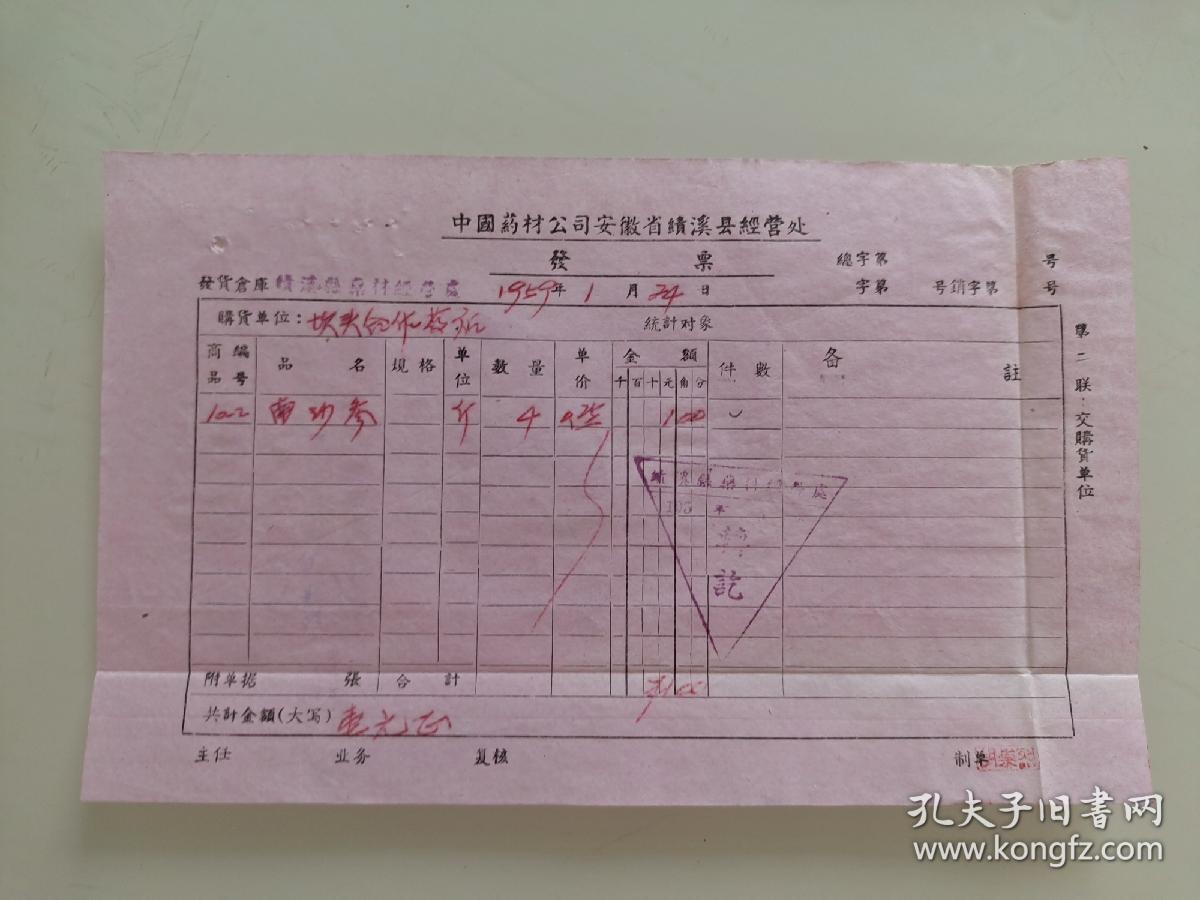 中國葯材公司安徽省績溪县經营处
發票
總字第 号
發貨倉庫 績溪縣藥材經營處 1959年 1 月 24 日 字第 号銷字第 号
購貨单位： 统計对象
商品編号 品名 規格 单位 数量 单价 金額 千百十元角分 件數 备註
1022 南沙參 斤 4 1 00
績溪縣藥材經營處
訖
附单据 張 合計 ¥1 00
共計金額(大写) 壹元正
主任 业务 复核 制单
第二联：交購貨单位
孔夫子旧书网
www.kongfz.com